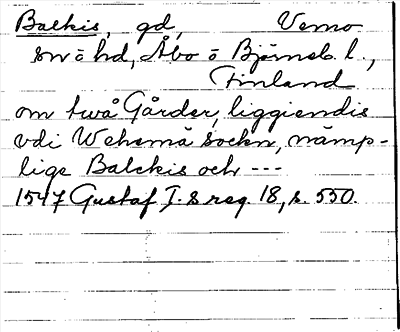 Balkis, gd, Vemo
sn o hd, Åbo o Björneb. l.,
Finland
om twå Gårder, liggiendis
vdi Wehemå sockn, nämp-
lige Balckis och ---
1547 Gustaf I:s reg. 18, s. 550.